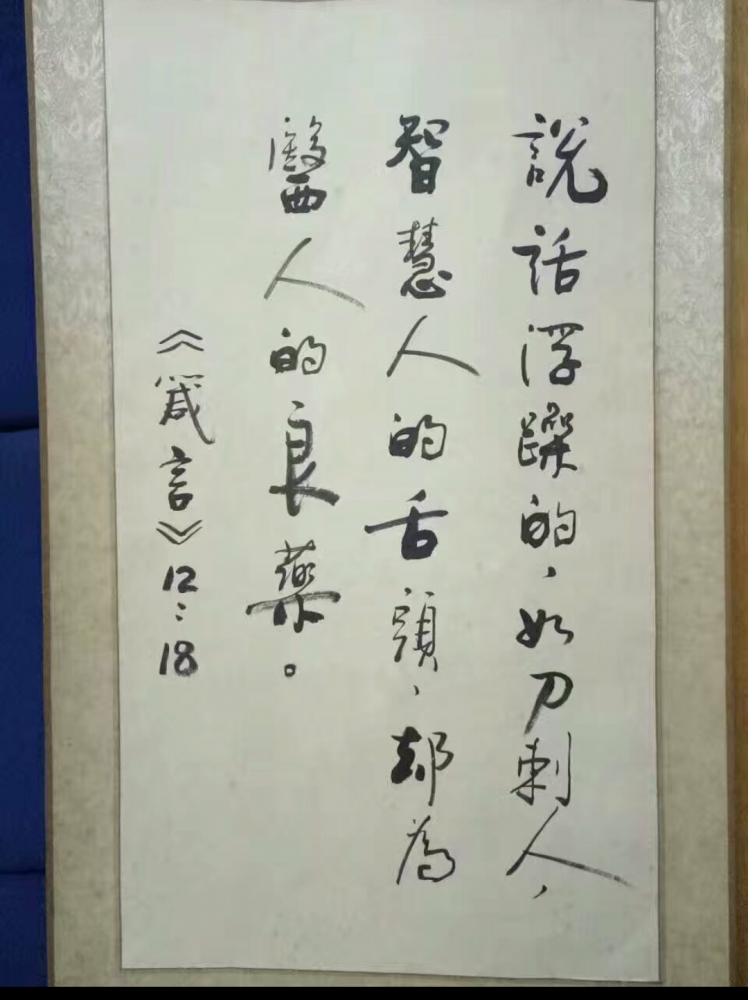 說話浮躁的，如刀刺人，
智慧人的舌頭，却為
醫人的良藥。
《箴言》12:18